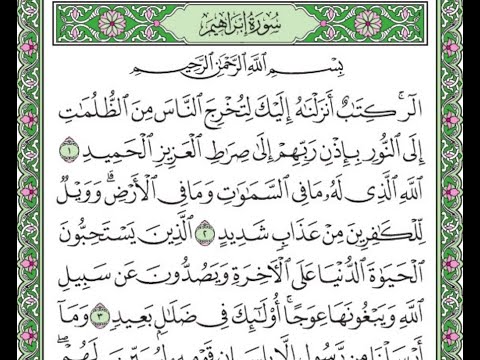 سُورَةُ إِبْرَاهِيم
بِسْمِ ٱللَّهِ ٱلرَّحْمَٰنِ ٱلرَّحِيمِ
الٓر ۚ كِتَٰبٌ أَنزَلْنَٰهُ إِلَيْكَ لِتُخْرِجَ ٱلنَّاسَ مِنَ ٱلظُّلُمَٰتِ
إِلَى ٱلنُّورِ بِإِذْنِ رَبِّهِمْ إِلَىٰ صِرَٰطِ ٱلْعَزِيزِ ٱلْحَمِيدِ ١
ٱللَّهِ ٱلَّذِى لَهُۥ مَا فِى ٱلسَّمَٰوَٰتِ وَمَا فِى ٱلْأَرْضِ ۗ وَوَيْلٌ
لِّلْكَٰفِرِينَ مِنْ عَذَابٍ شَدِيدٍ ٢ ٱلَّذِينَ يَسْتَحِبُّونَ
ٱلْحَيَوٰةَ ٱلدُّنْيَا عَلَى ٱلْأَخِرَةِ وَيَصُدُّونَ عَن سَبِيلِ
ٱللَّهِ وَيَبْغُونَهَا عِوَجًا ۚ أُو۟لَٰٓئِكَ فِى ضَلَٰلٍۭ بَعِيدٍ ٣ وَمَآ
أَرْسَلْنَا مِن رَّسُولٍ إِلَّا بِلِسَانِ قَوْمِهِۦ لِيُبَيِّنَ لَهُمْ ۖ